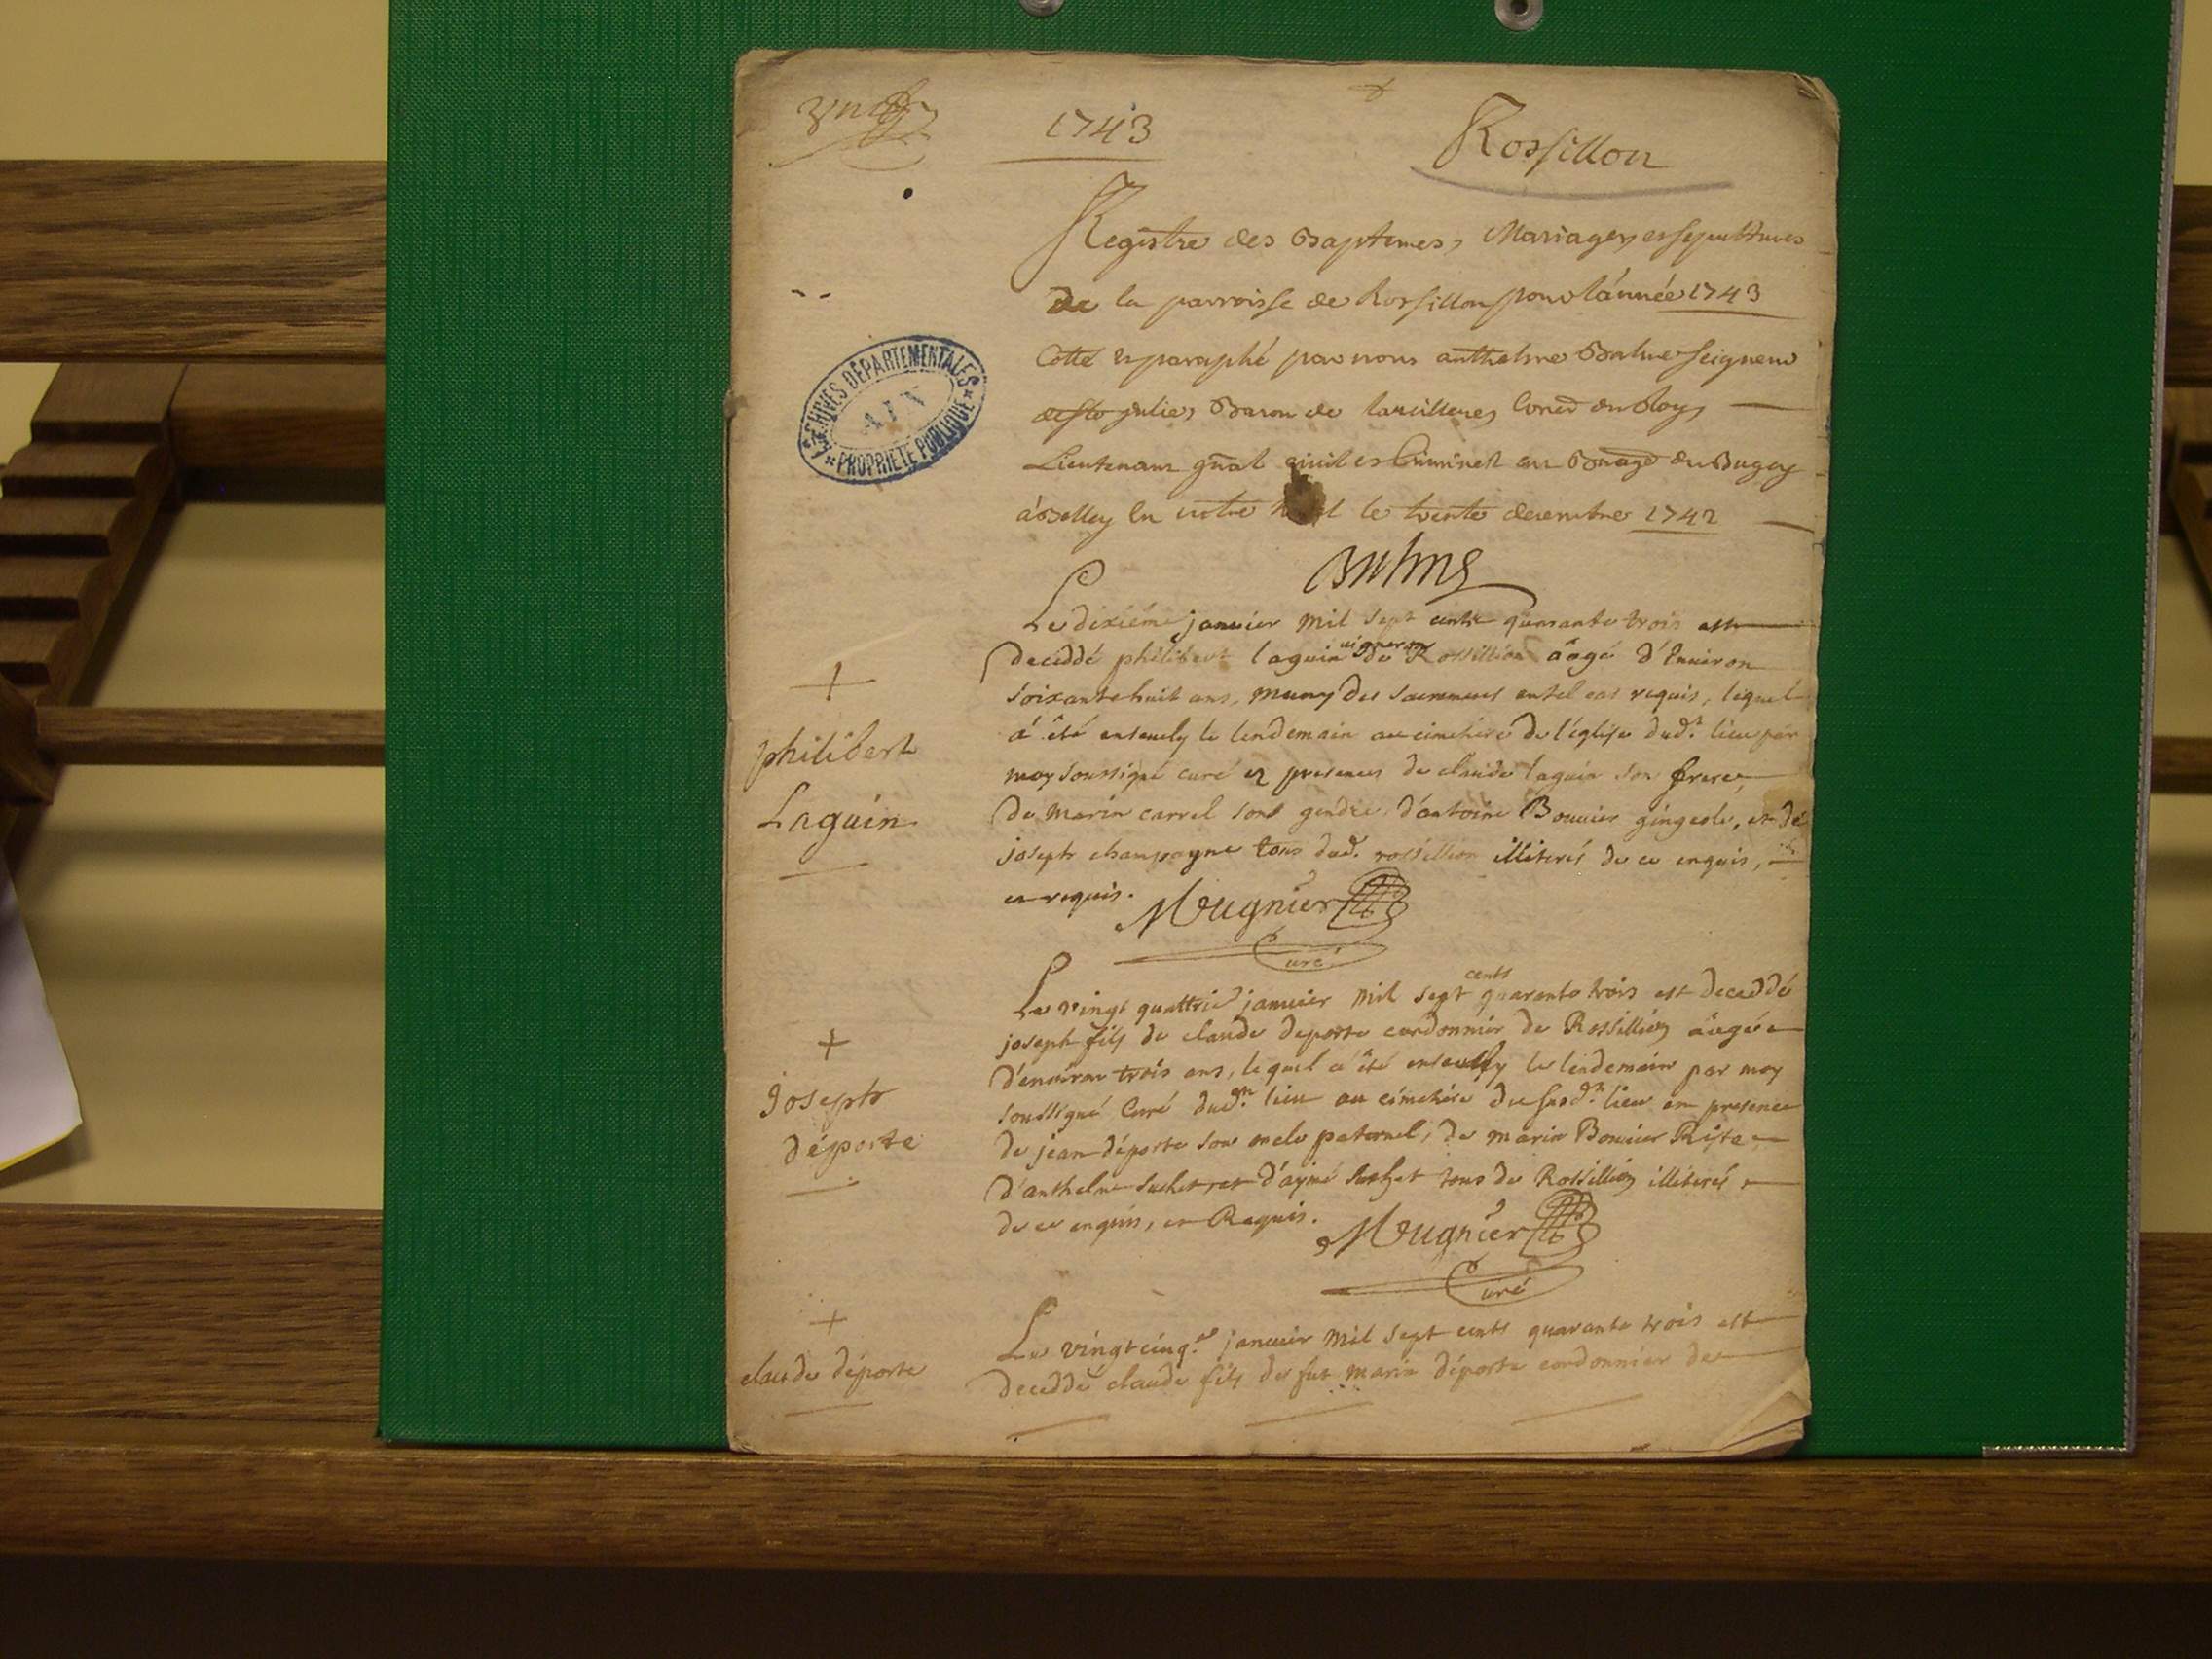 1743
Rossillon
Registre des Baptemes, Mariages et sepultures
De la parroisse de Rossillon pour l'année 1743
Cotté et paraphé par nous anthelme Balme seigneur
de ste julie, Baron de Du Roy
Lieutenant gnal civil et Criminel au du Bugey
à Belley en notre le trente decembre 1742
Balme
ARCHIVES DÉPARTEMENTALES
AIN
PROPRIÉTÉ PUBLIQUE
+
philibert
Laguin
Le dixiéme janvier mil sept cents quarante trois est
deceddé philibert laguin vigneron de Rossillion âagé d'Environ
soixante huit ans, muny des sacremens en tel cas requis, lequel
á été ensevely le lendemain au cimetiere de l'église dud.t lieu par
moy soussigné curé et presences de claude laguin son frere,
de marin carrel son gendre, d'antoine Bouvier gingeole, et de
joseph champagne tous dud. rossillion illiterés de ce enquis,
et requis. Mugnier
Curé
+
Joseph
déporte
Le vingt quattrie janvier mil sept cents quarante trois est deceddé
joseph fils de claude deporte cordonnier de Rossillion âagée
d'environ trois ans, lequel a été ensevely le lendemain par moy
soussigné Curé dud.t lieu au cimetiere du susd.t lieu en presence
de jean déporte son oncle paternel, de marin Bouvier Riste
d'anthelme suchet et d'aymé suchet tous de Rossillion illiterés
de ce enquis, et Requis. Mugnier
Curé
+
claude déporte
Le vingt cinq.e janvier mil sept cents quarante trois est
deceddé claude fils de fut marin déporte cordonnier de